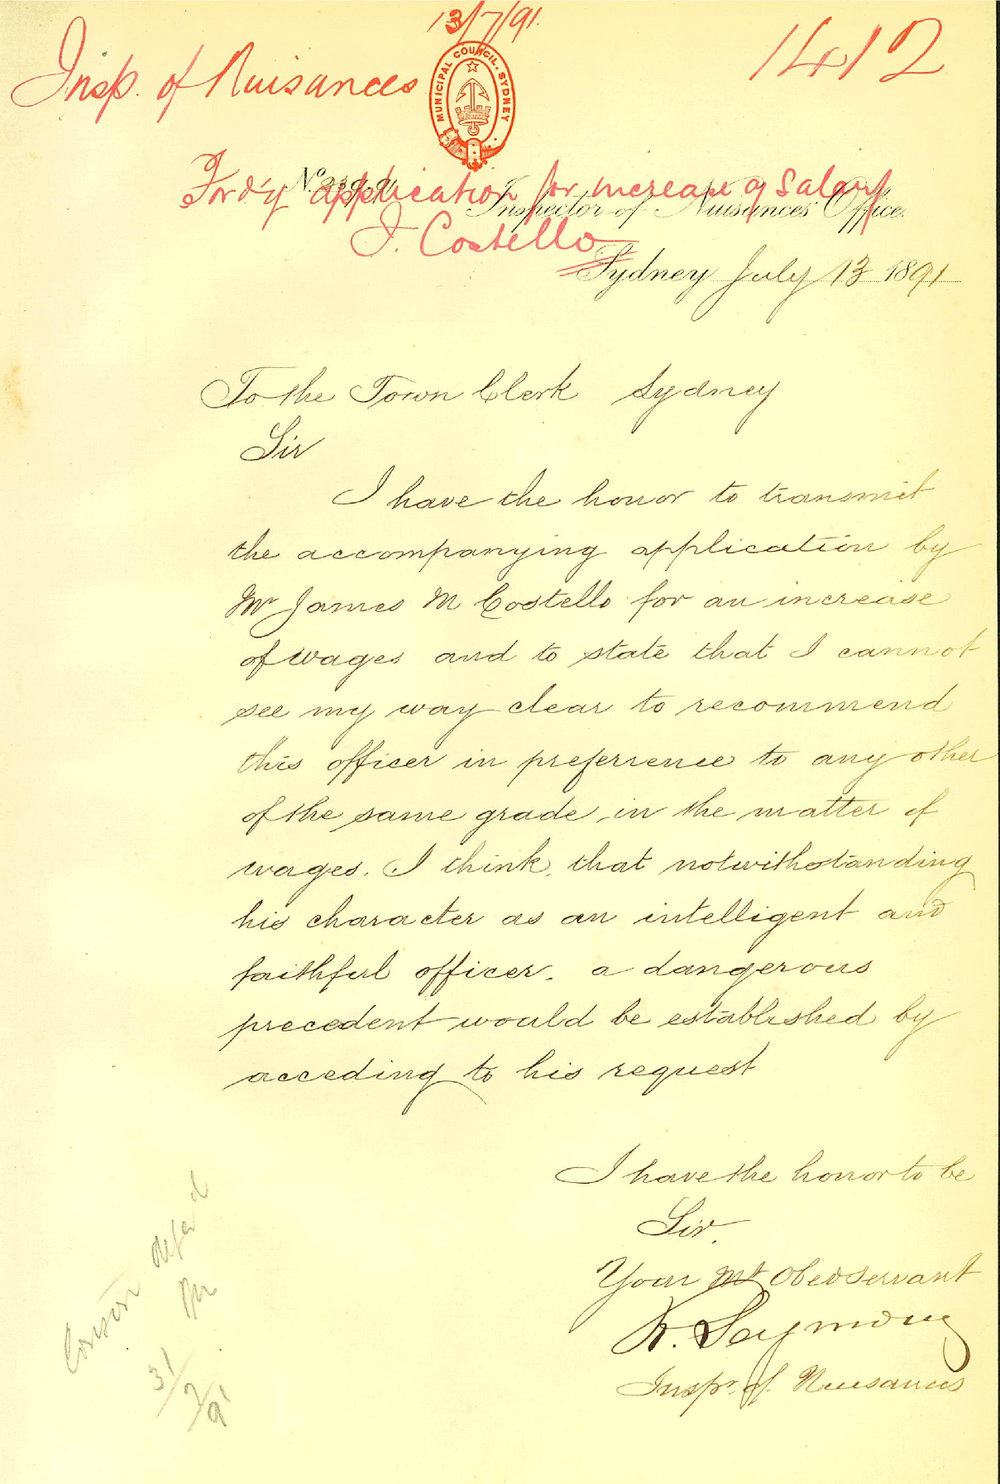 13/7/91
Insp. of Nuisances
1412
MUNICIPAL COUNCIL. SYDNEY
Fordg application for increase of Salary
J. Costello
No. 239.91
Inspector of Nuisances Office.
Sydney July 13 1891
To the Town Clerk Sydney
Sir
I have the honor to transmit
the accompanying application by
Mr James M Costello for an increase
of wages and to state that I cannot
see my way clear to recommend
this officer in preferrence to any other
of the same grade, in the matter of
wages. I think, that notwithstanding
his character as an intelligent and
faithful officer. a dangerous
precedent would be established by
acceding to his request
I have the honor to be
Sir.
Your Mt Obedservant
R. Seymour
Inspr. of Nuisances
Conson defe'd
31/7/91